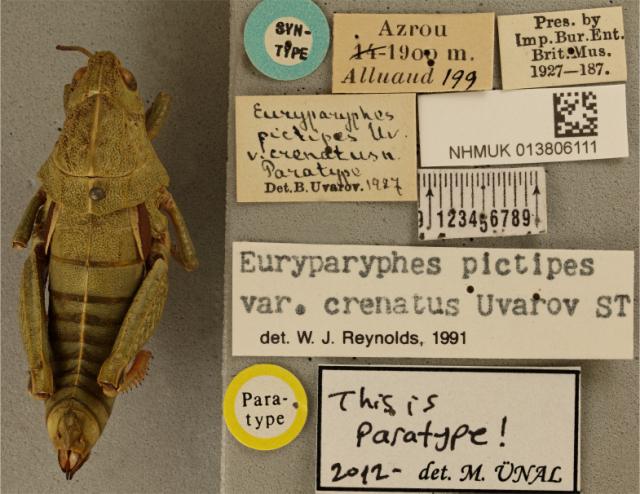 SYN-
TYPE
Azrou
14-1900 m.
Alluaud 199
Pres. by
Imp.Bur.Ent.
Brit.Mus.
1927—187.
Euryparyphes
pictipes Uv.
v. crenatus n.
Paratype
Det. B. Uvarov. 1927
NHMUK 013806111
0 1 2 3 4 5 6 7 8 9
Euryparyphes pictipes
var. crenatus Uvarov ST
det. W. J. Reynolds, 1991
Para-
type
This is
Paratype!
2012- det. M. ÜNAL